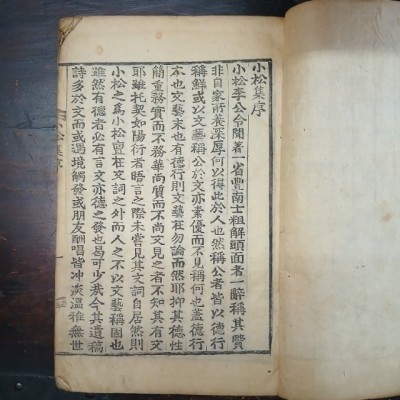 小松集序
小松李公令聞著一省豐南士粗解頭面者一辭稱其賢
非自家所養深厚何以得此於人也然稱公者皆以德行
稱鮮或以文藝稱公於文亦素優而不見稱何也盖德行
本也文藝末也有德行則文藝在勿論而然耶抑其德性
簡重務實而不務華尚質而不尚文見之者不知其有文
耶雖托契如陽衍者晤言之際未嘗見其文詞自居然則
小松之爲小松亶在文詞之外而人之不以文藝稱固也
雖然有德者必有言文亦德之發也曷可少哉今其遺稿
詩多於文而或遇境觸發或朋友酬唱皆冲淡溫雅無世
小松集序